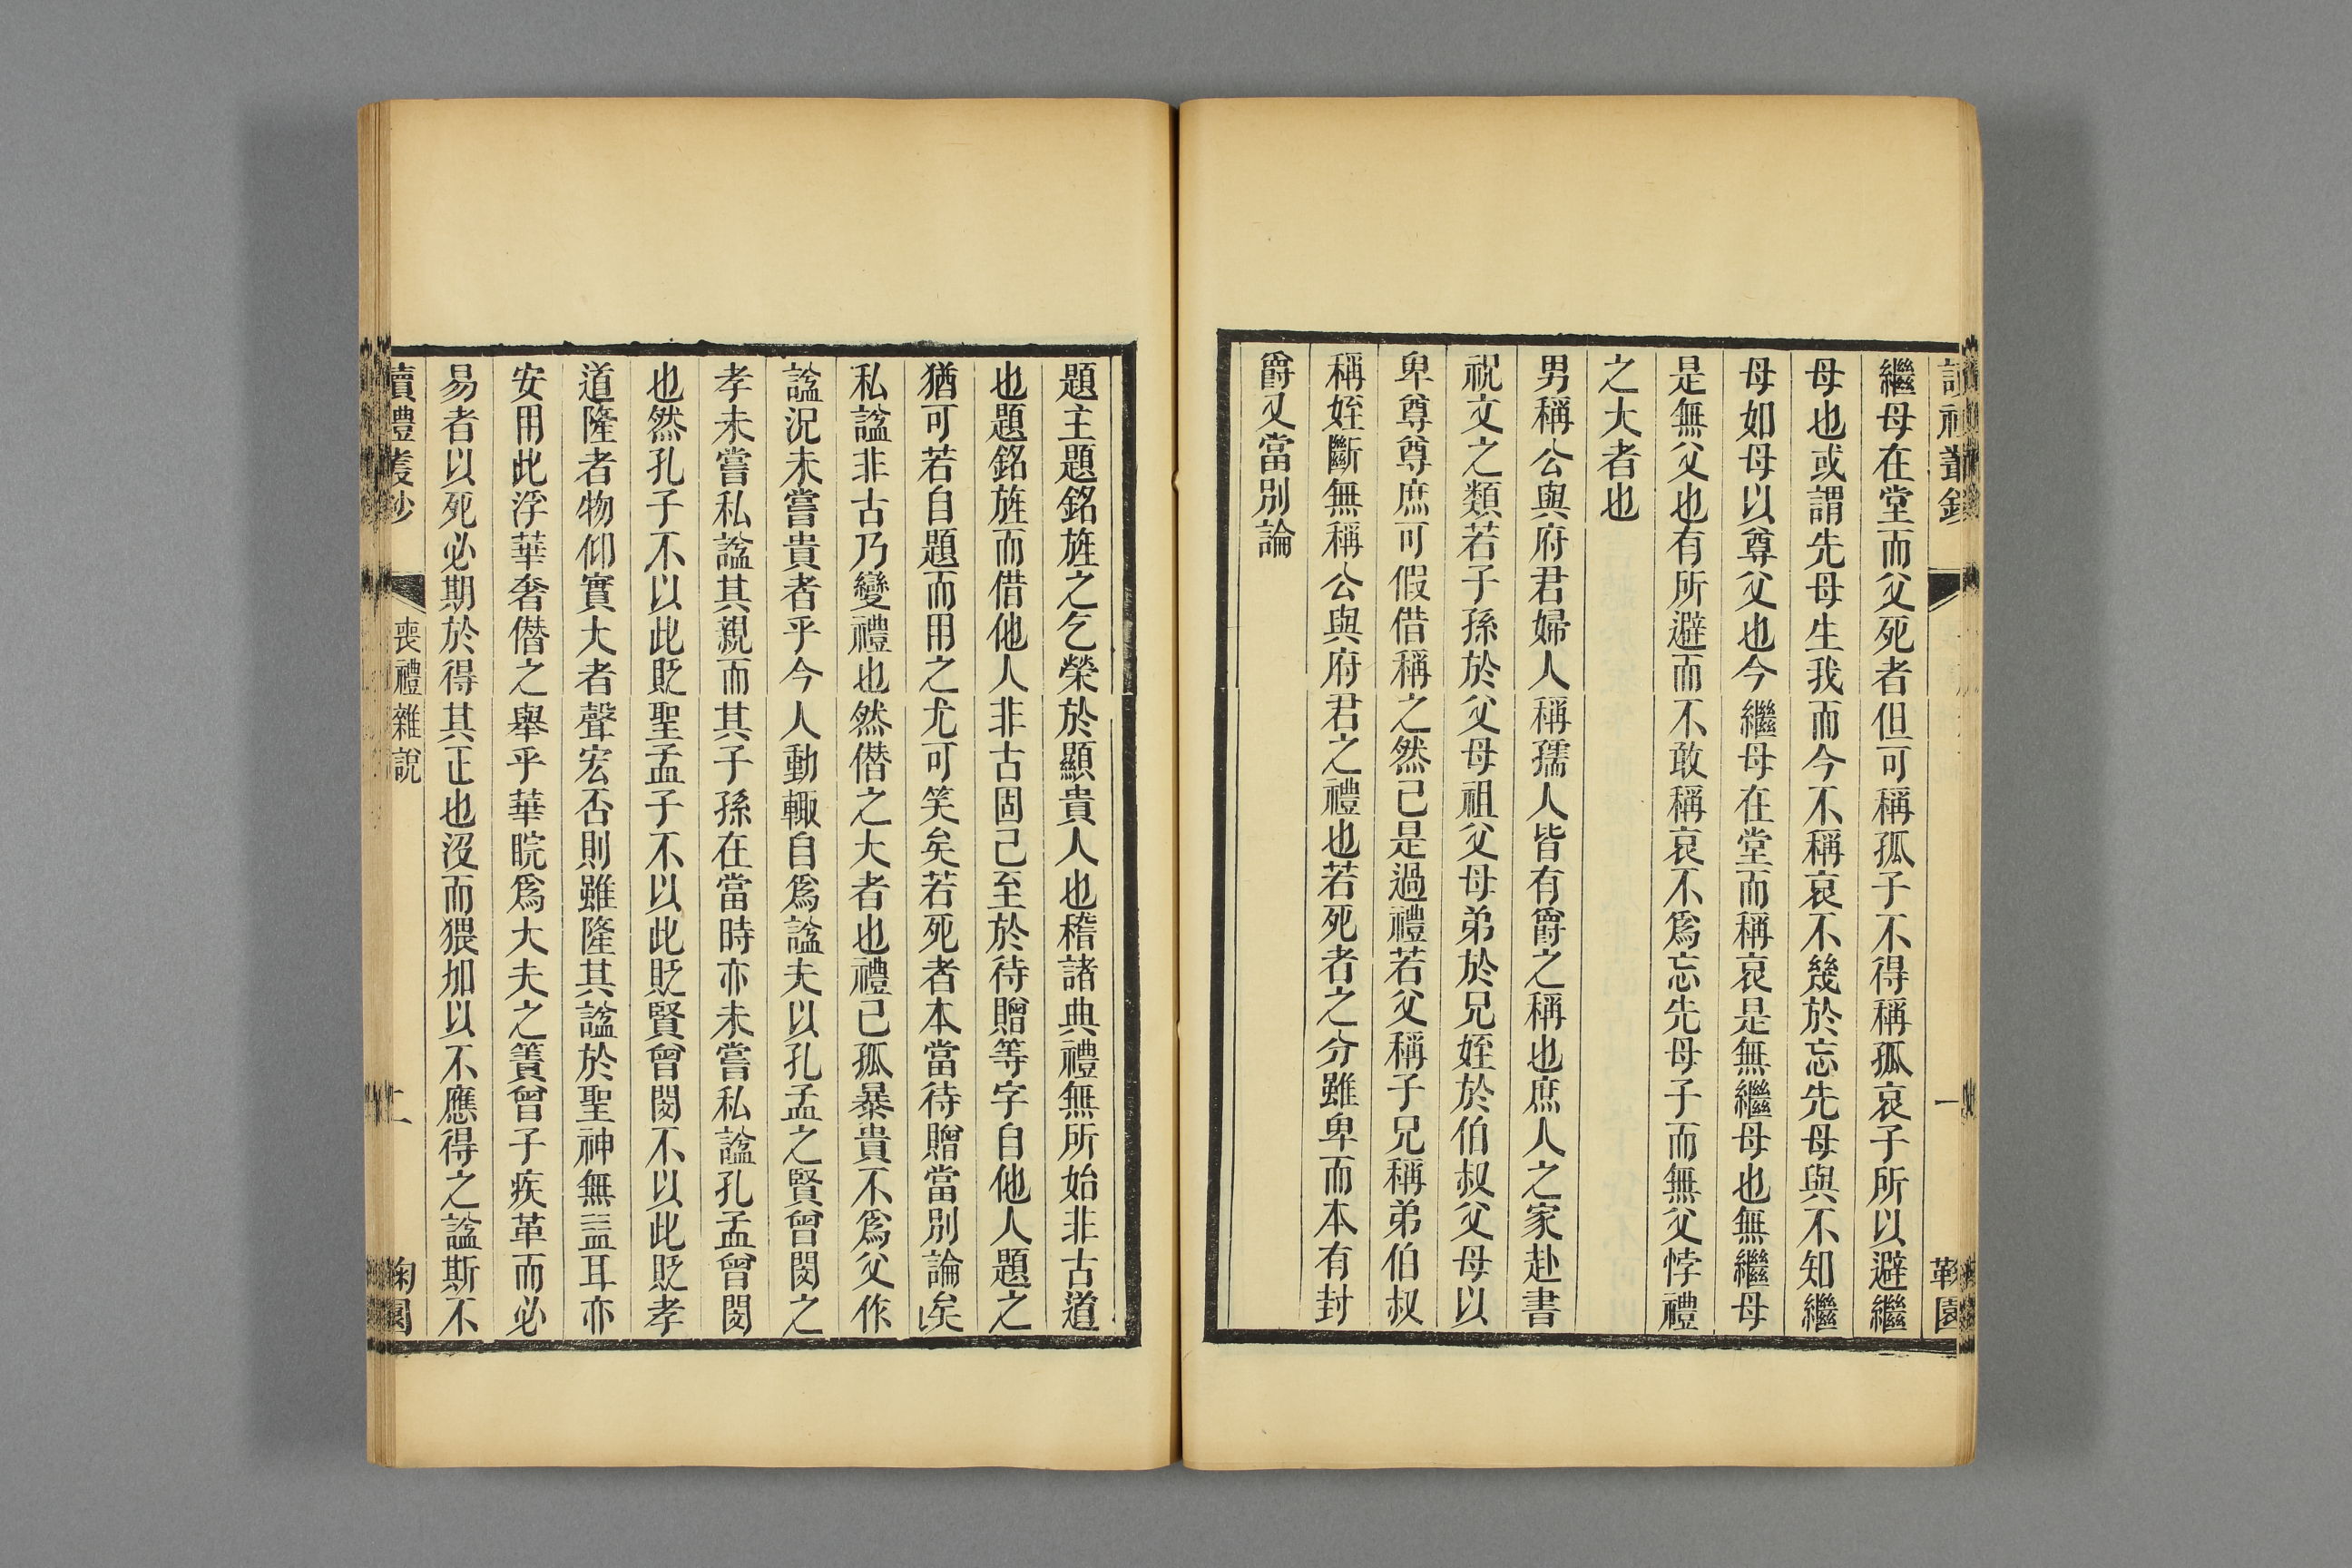 繼母在堂而父死者但可稱孤子不得稱孤哀子所以避繼
母也或謂先母生我而今不稱哀不幾於忘先母與不知繼
母如母以尊父也今繼母在堂而稱哀是無繼母也無繼母
是無父也有所避而不敢稱哀不爲忘先母子而無父悖禮
之大者也
男稱公與府君婦人稱孺人皆有爵之稱也庶人之家赴書
祝文之類若子孫於父母祖父母弟於兄姪於伯叔父母以
卑尊尊庶可假借稱之然已是過禮若父稱子兄稱弟伯叔
稱姪斷無稱公與府君之禮也若死者之分雖卑而本有封
爵又當別論
題主題銘旌之乞榮於顯貴人也稽諸典禮無所始非古道
也題銘旌而借他人非古固已至於待贈等字自他人題之
猶可若自題而用之尤可笑矣若死者本當待贈當別論矣
私諡非古乃變禮也然僭之大者也禮已孤暴貴不爲父作
諡況未嘗貴者乎今人動輒自爲諡夫以孔孟之賢曾閔之
孝未嘗私諡其親而其子孫在當時亦未嘗私諡孔孟曾閔
也然孔子不以此貶聖孟子不以此貶賢曾閔不以此貶孝
道隆者物仰實大者聲宏否則雖隆其諡於聖神無益耳亦
安用此浮華奢僭之舉乎華睆爲大夫之簀曾子疾革而必
易者以死必期於得其正也沒而猥加以不應得之諡斯不
讀禮叢鈔
喪禮雜說
二